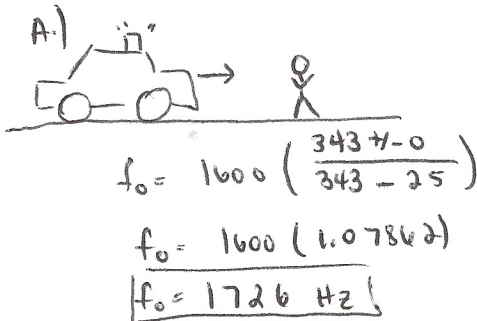 A.)
f₀ = 1600 ( 343 +/- 0 / 343 - 25 )
f₀ = 1600 ( 1.07862 )
f₀ = 1726 Hz